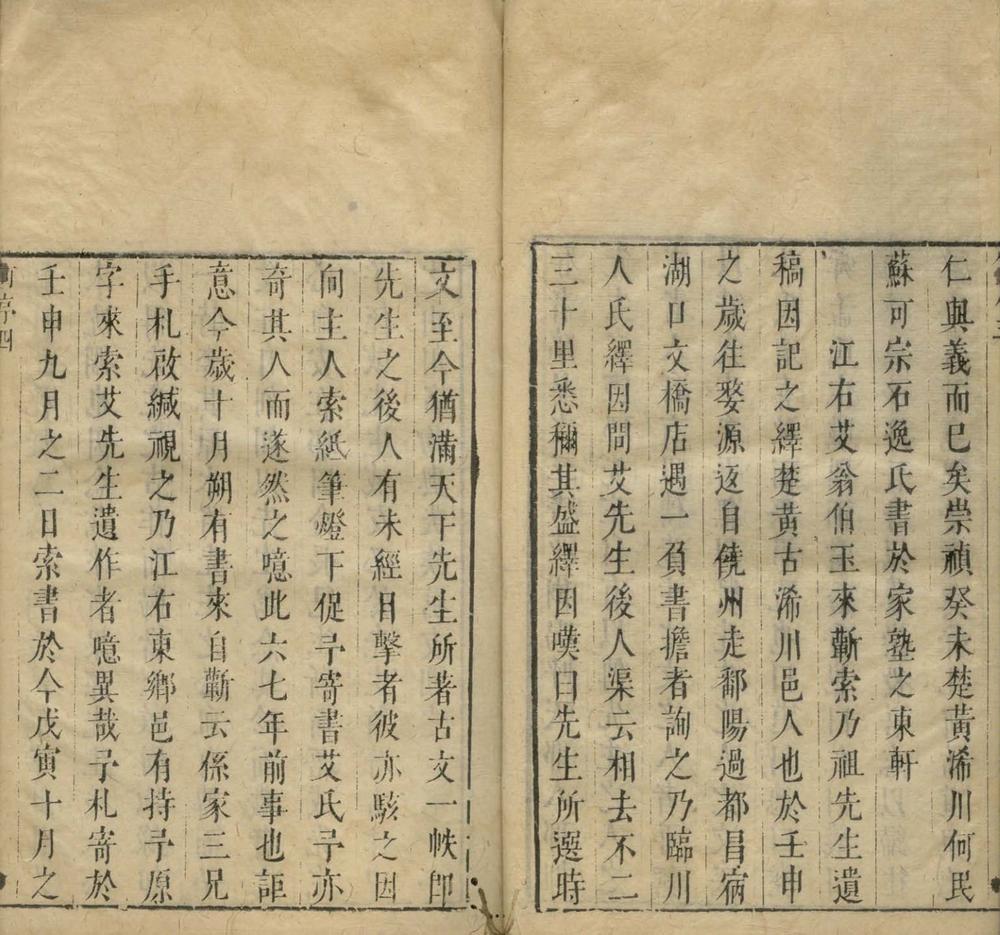 仁與義而已矣崇禎癸未楚黃浠川何民
蘇可宗石逸氏書於家塾之東軒
江右艾翁伯玉來蘄索乃祖先生遺
稿因記之繹楚黃古浠川邑人也於壬申
之歲往婺源返自饒州走鄱陽過都昌宿
湖口文橋店遇一負書擔者詢之乃臨川
人氏繹因問艾先生後人渠云相去不二
三十里悉稱其盛繹因嘆曰先生所選時
文至今猶滿天下先生所著古文一帙卽
先生之後人有未經目擊者彼亦駭之因
向主人索紙筆燈下促予寄書艾氏予亦
奇其人而遂然之噫此六七年前事也詎
意今歲十月朔有書來自蘄云係家三兄
手札啟緘視之乃江右東鄉邑有持予原
字來索艾先生遺作者噫異哉予札寄於
壬申九月之二日索書於今戊寅十月之
序四